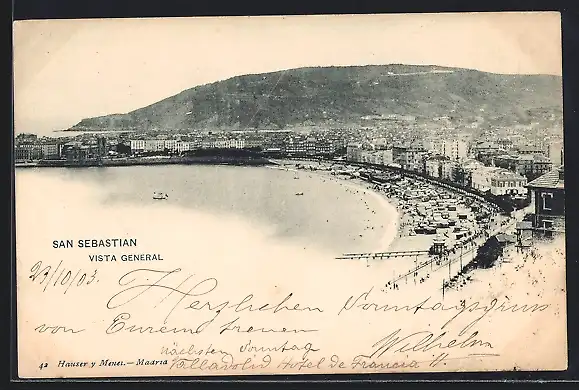 SAN SEBASTIAN
VISTA GENERAL
23/10/03. Herzlichen Sonntagsgruss
von Eurem treuen Wilhelm
nächsten Sonntag
Valladolid Hotel de Francia
42 Hauser y Menet.—Madrid